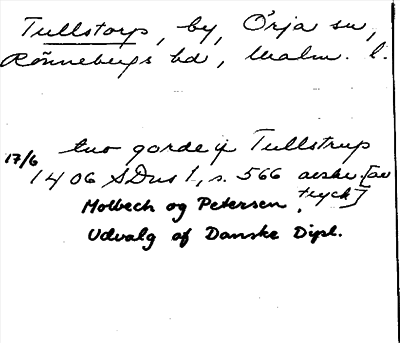 Tullstorp, by, Örja sn,
Rönnebergs hd, Malm. l.
17/6 two gorde j Tullstrup
1406 SDns 1, s. 566 avskr. [av
tryck]
Molbech og Petersen.
Udvalg af Danske Dipl.